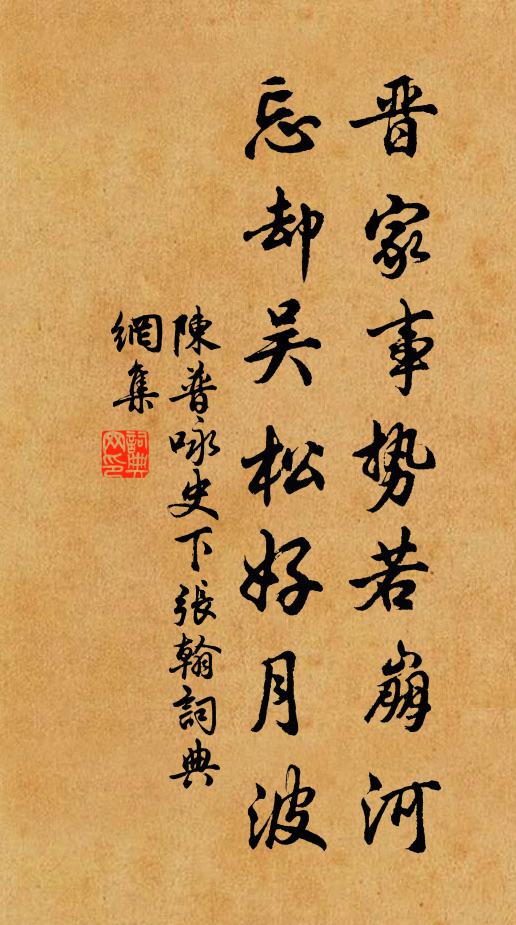 晋家事势若崩河
忘却吴松好月波
陳普咏史下張翰詞典
網集
詞典网印